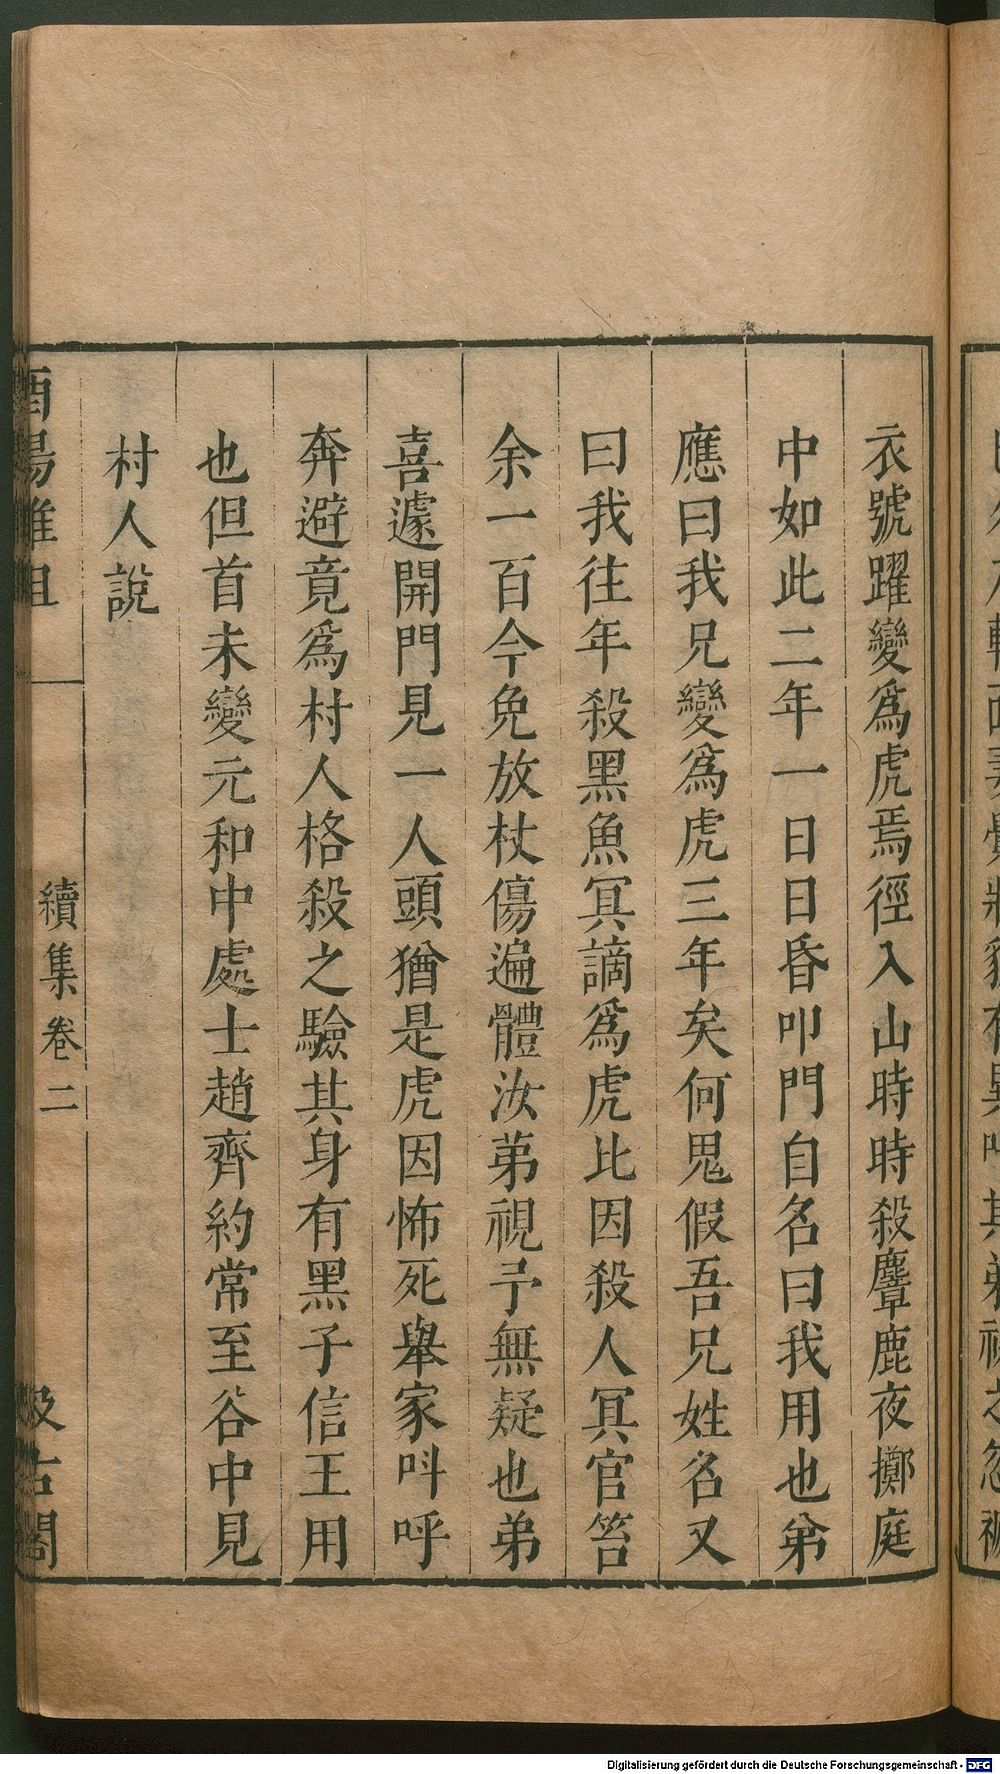 衣號躍變爲虎焉徑入山時時殺麞鹿夜擲庭
中如此二年一日日昏叩門自名曰我用也弟
應曰我兄變爲虎三年矣何鬼假吾兄姓名又
曰我往年殺黑魚冥謫爲虎比因殺人冥官笞
余一百今免放杖傷遍體汝弟視予無疑也弟
喜遽開門見一人頭猶是虎因怖死舉家呌呼
奔避竟爲村人格殺之驗其身有黑子信王用
也但首未變元和中處士趙齊約常至谷中見
村人說
酉陽雜俎
續集卷二
汲古閣
Digitalisierung gefördert durch die Deutsche Forschungsgemeinschaft - DFG